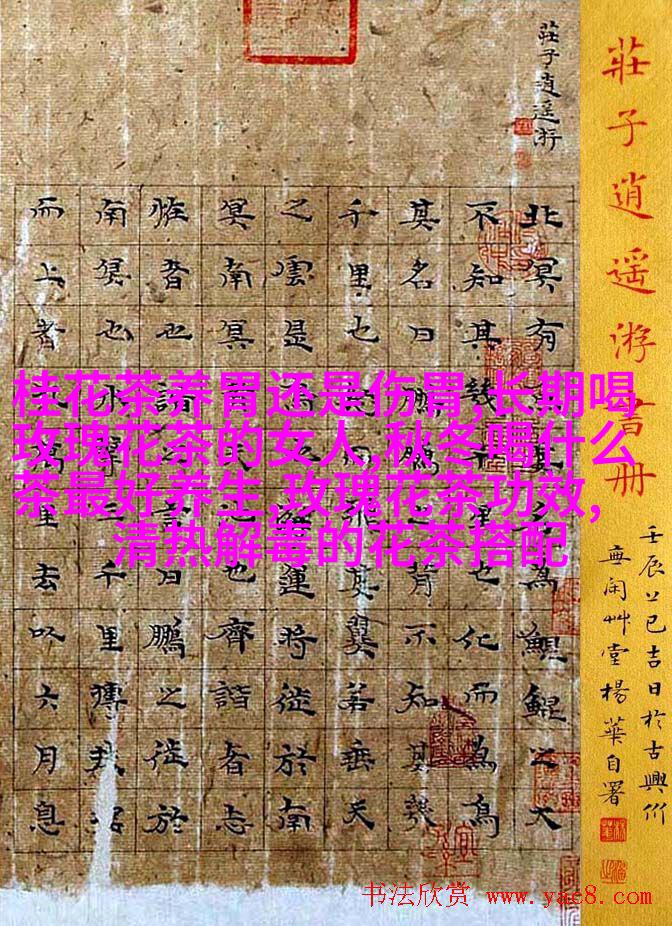 莊子逍遥游
北冥有魚其名為鯤鯤之大
不知其幾千里也化而為鳥
其名曰鵬鵬之背不知其幾
千里也怒而飛其翼若垂天
之雲是鳥也海運將徙於南
冥南冥者天池也齊諧者志
恠者也諧之言曰鵬之徙於
南冥也水擊三千里摶扶搖
而上者九萬里去以六月息
莊子逍遥游書册
壬辰上巳吉日於古興
無闲艸堂楊華自署
桂花茶养胃还是伤胃,长期喝
玫瑰花茶的女人,秋冬喝什么
茶最好养生,玫瑰花茶功效,
清热解毒的花茶搭配
书法欣赏 www.yac8.com